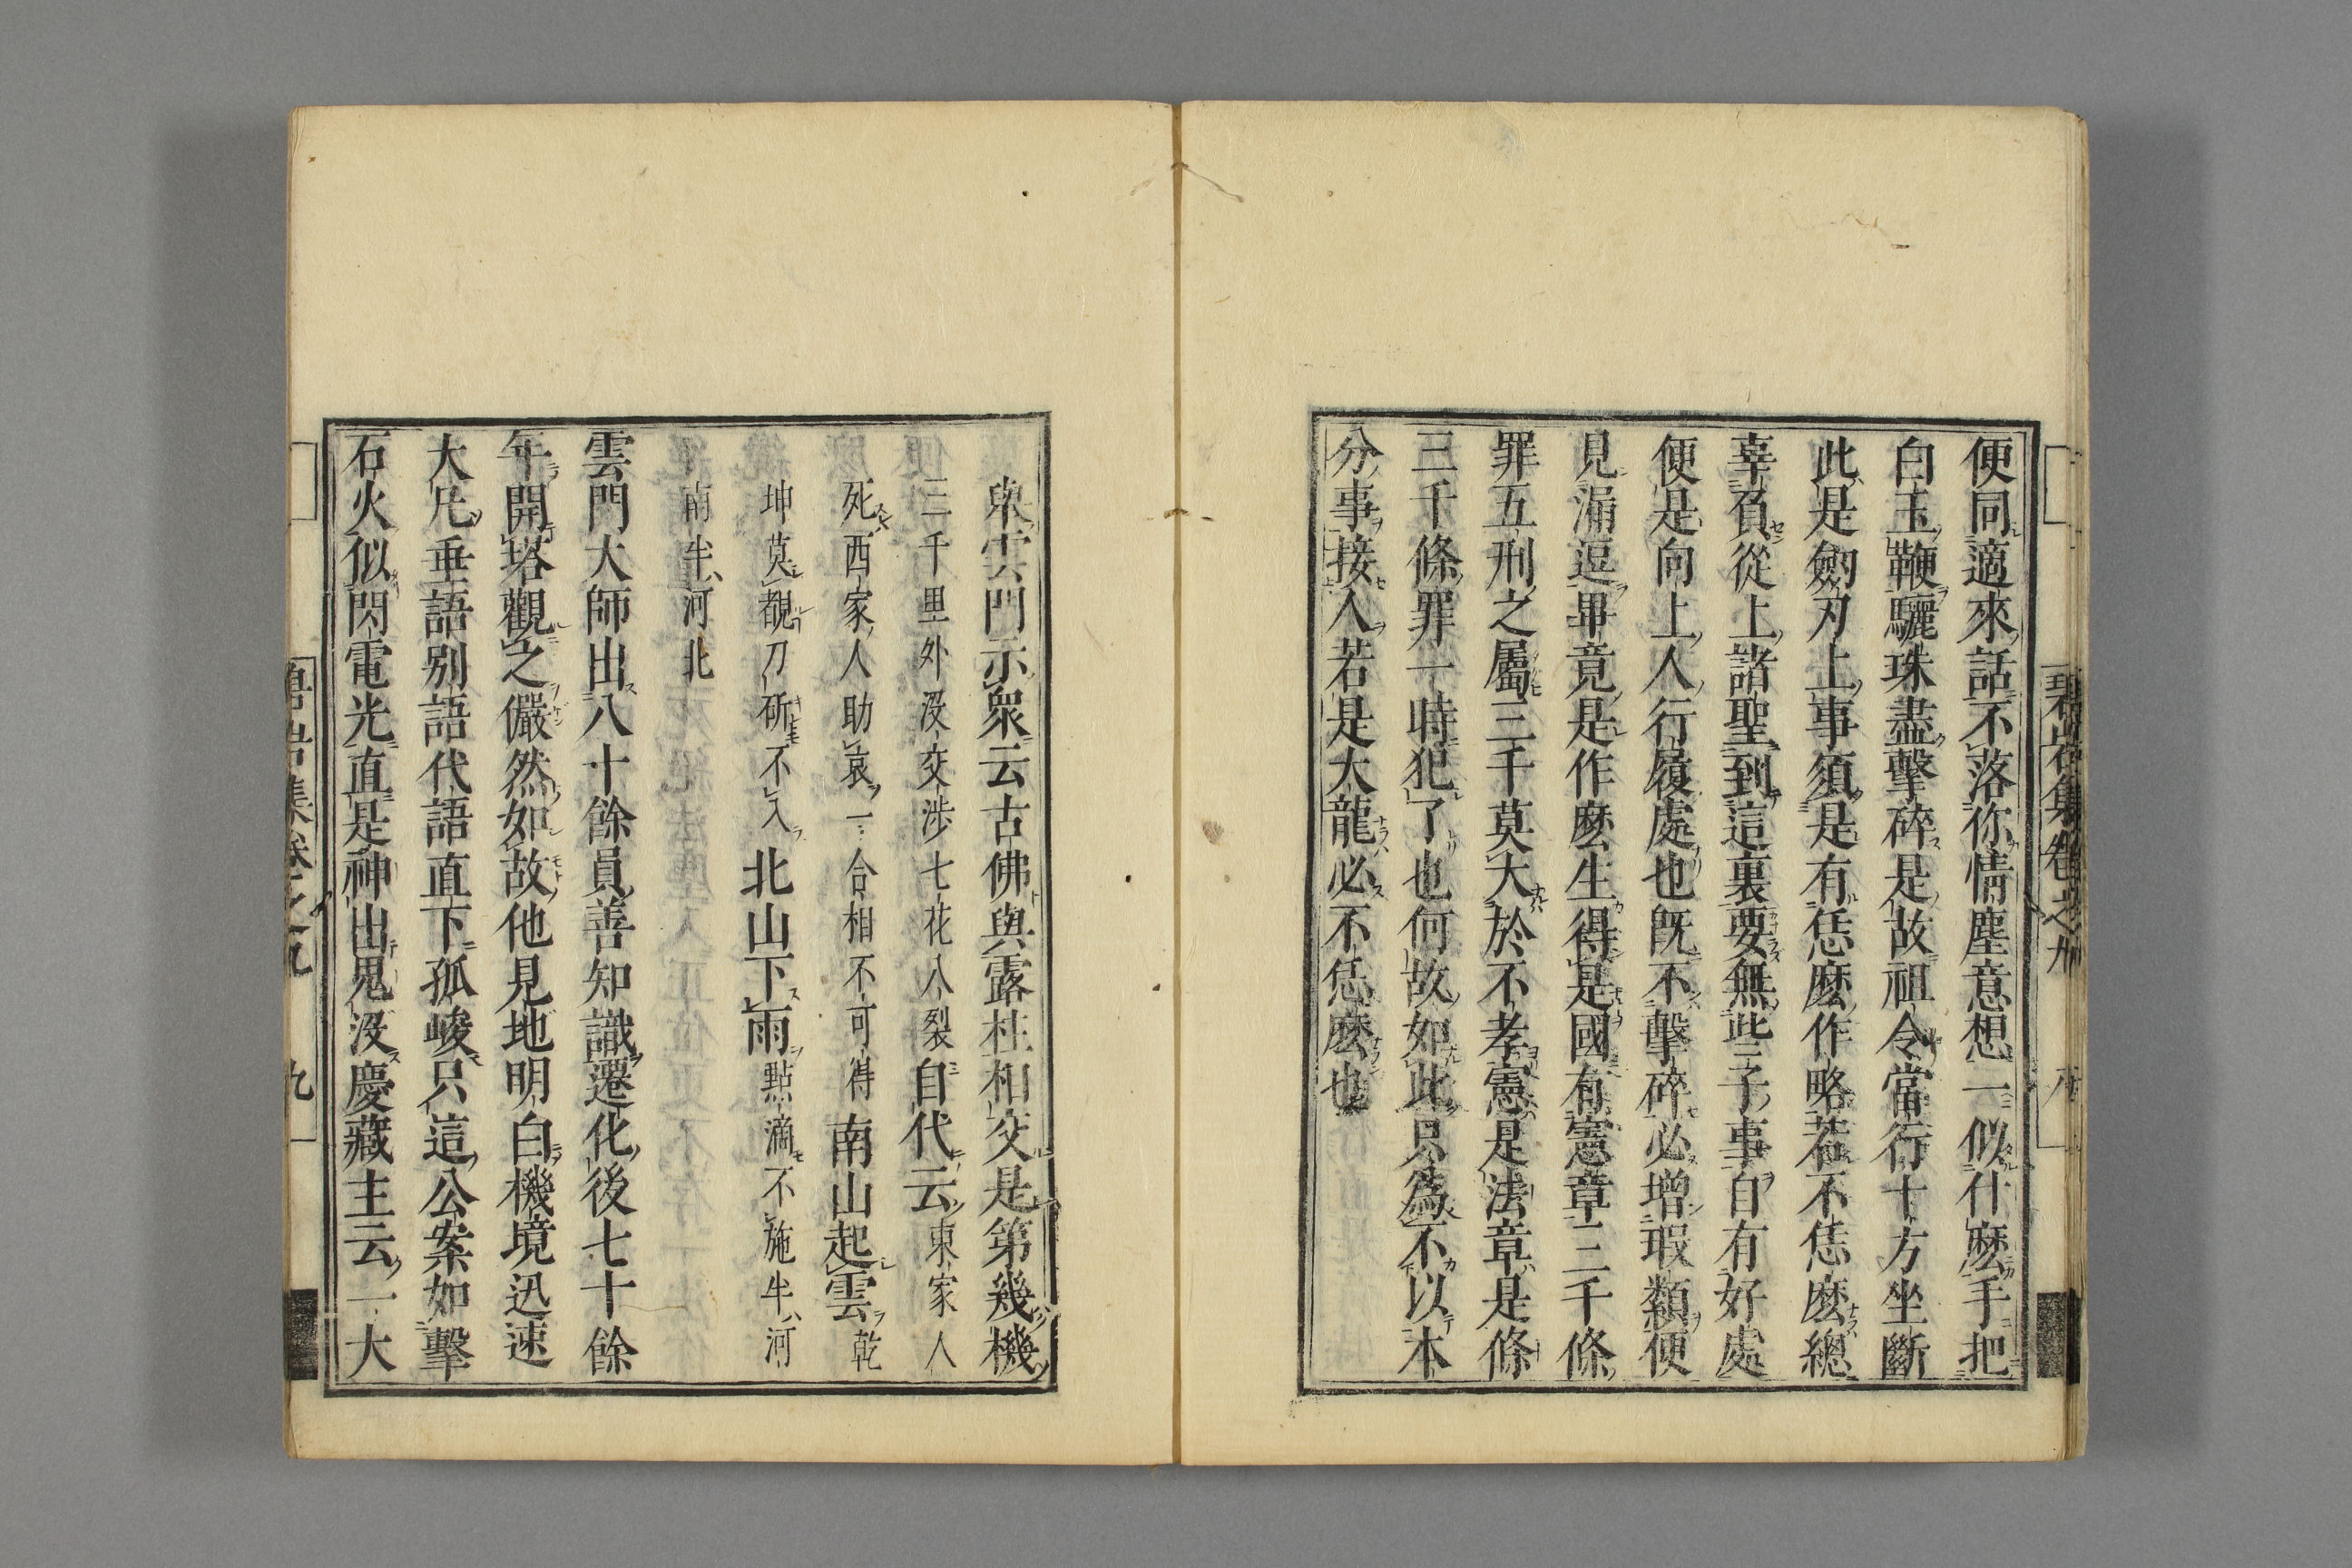 便同適來話不落你情塵意想一似什麽手把
白玉鞭驪珠盡擊碎是故祖令當行十方坐斷
此是劒刃上事須是有恁麽作略若不恁麽總
辜負從上諸聖到這裏要無些子事自有好處
便是向上人行履處也既不擊碎必增瑕纇便
見漏逗畢竟是作麽生得是國有憲章三千條
罪五刑之屬三千莫大於不孝憲是法章是條
三千條罪一時犯了也何故如此只爲不以本
分事接人若是大龍必不恁麽也
碧岩集卷之九 八
擧雲門示衆云古佛與露柱相交是第幾機
三千里外没交涉七花八裂自代云東家人
死西家人助哀一合相不可得南山起雲乾
坤莫覩刀斫不入北山下雨點滴不施半河
南半河北
雲門大師出八十餘員善知識遷化後七十餘
年開塔觀之儼然如故他見地明白機境迅速
大凡垂語别語代語直下孤峻只這公案如擊
石火似閃電光直是神出鬼没慶藏主云一大
碧岩集卷之九 九